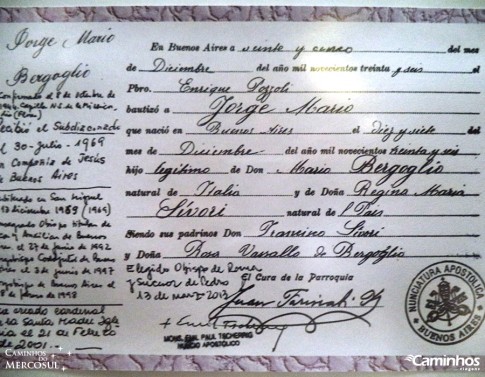 Jorge Mario
Bergoglio
Confirmado el 8 de octubre de
Capilla N.S. de la Misericordia
(Flores)
Recibió el Subdiaconado
el 30-julio-1969
en Compañía de Jesús
de Buenos Aires
en San Miguel
13 diciembre 1969 (1969)
Obispo titular de
Auca y Auxiliar de Buenos
Aires el 27 de junio de 1992
Arzobispo Coadjutor de Buenos
Aires el 3 de junio de 1997
Arzobispo de Buenos Aires el
28 de febrero de 1998
creado cardenal
la Santa Madre Iglesia
el 21 de Febrero
de 2001.
En Buenos Aires a veinte y cinco del mes
de Diciembre del año mil novecientos treinta y seis el
Pbro. Enrique Pozzoli
bautizó a Jorge Mario
que nació en Buenos Aires el diez y siete
de Diciembre del año mil novecientos treinta y seis
hijo legítimo de Don Mario Bergoglio
natural de Italia y de Doña Regina María
Sívori natural de l País
Siendo sus padrinos Don Francisco Sívori
y Doña Rosa Vassallo de Bergoglio
Elegido Obispo de Roma
y Sucesor de Pedro
13 de marzo 2013
El Cura de la Parroquia
MONS. EMIL PAUL TSCHERRIG
NUNCIO APOSTÓLICO
NUNCIATURA APOSTOLICA
BUENOS AIRES
CAMINHOS
DO
MERCOSUL
Caminhos
viagens